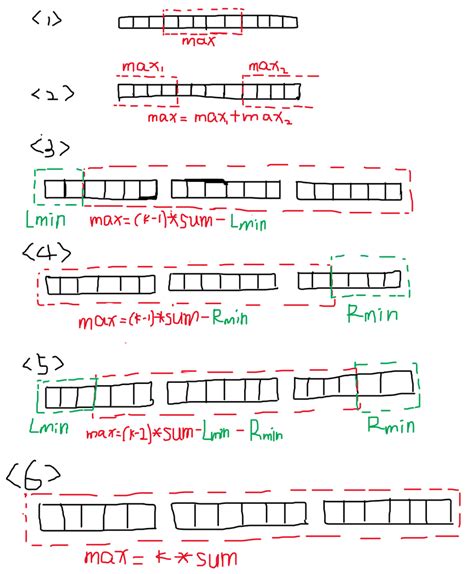 <1>
max
<2>
max₁ max₂
max=max₁+max₂
<3>
Lmin max=(k-1)*sum-Lmin
<4>
max=(k-1)*sum-Rmin Rmin
<5>
Lmin max=(k-1)*sum-Lmin-Rmin Rmin
<6>
max=k*sum